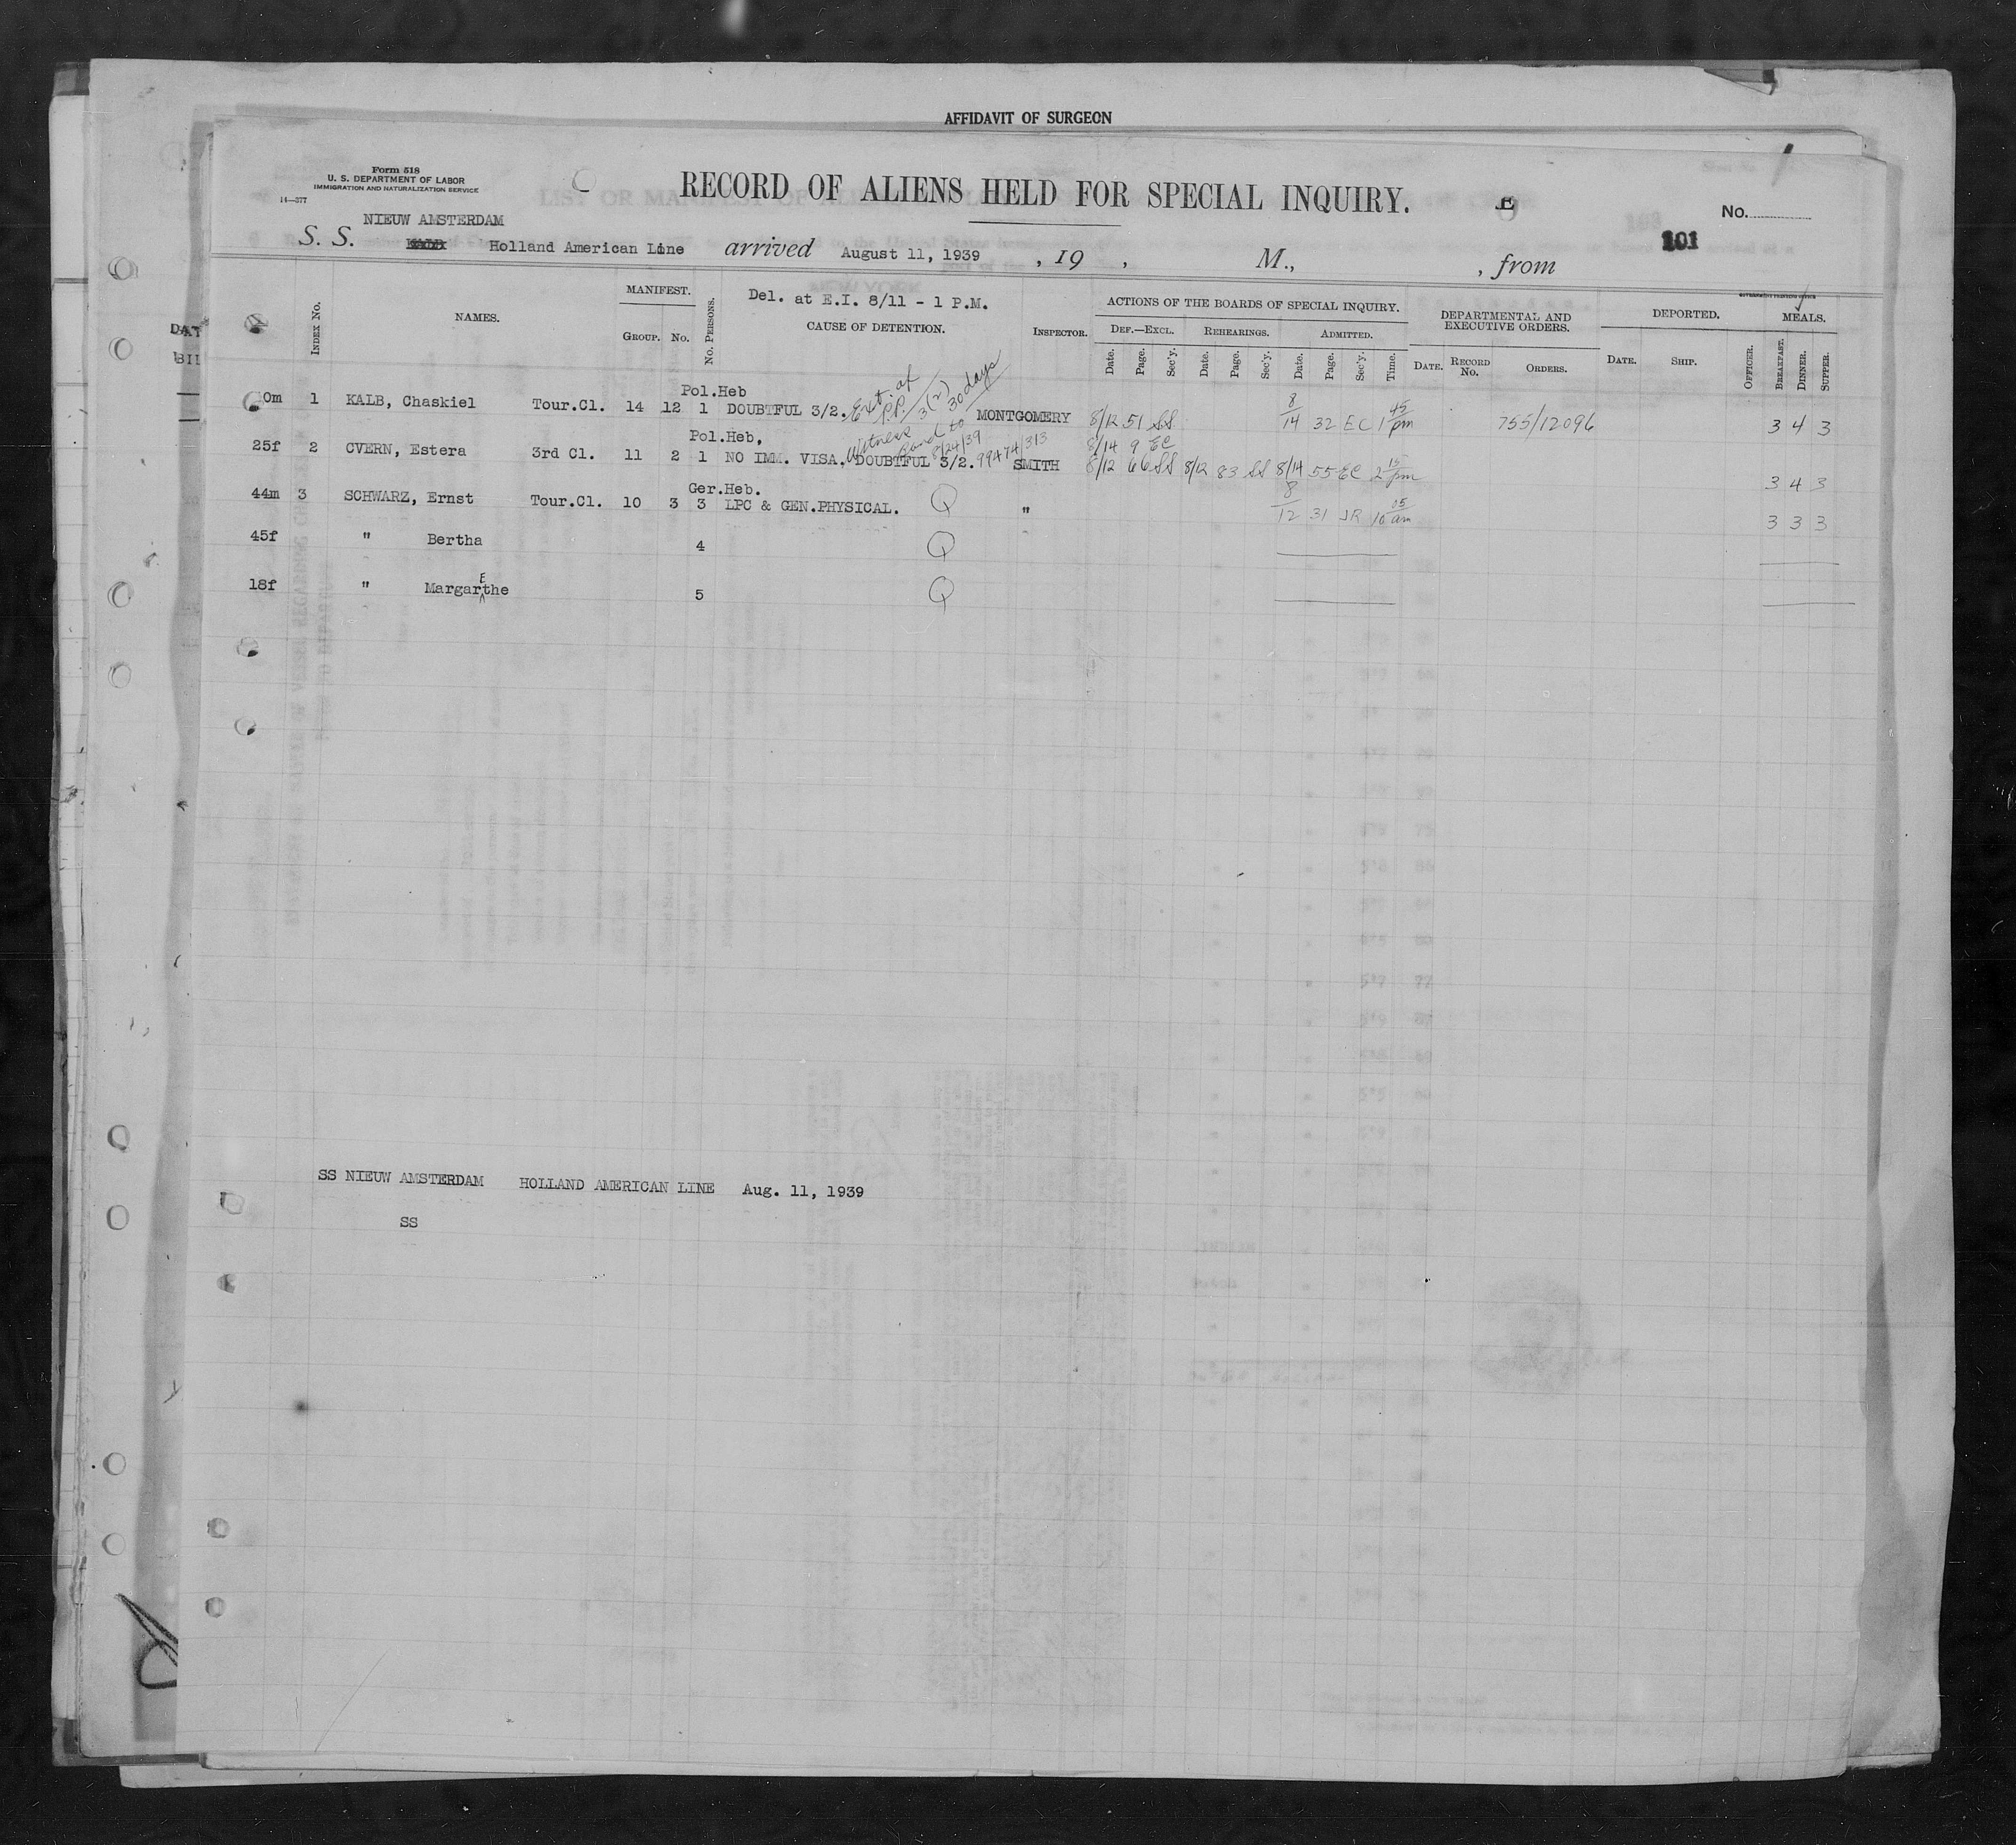 AFFIDAVIT OF SURGEON
Form 518
U. S. DEPARTMENT OF LABOR
IMMIGRATION AND NATURALIZATION SERVICE
14—377
RECORD OF ALIENS HELD FOR SPECIAL INQUIRY.
E
No.
101
NIEUW AMSTERDAM
S. S. Holland American Line arrived August 11, 1939 , 19 , M., , from
GOVERNMENT PRINTING OFFICE
INDEX No.
NAMES.
MANIFEST.
GROUP. No.
No. PERSONS.
Del. at E.I. 8/11 - 1 P.M.
CAUSE OF DETENTION.
INSPECTOR.
ACTIONS OF THE BOARDS OF SPECIAL INQUIRY.
DEF.—EXCL. REHEARINGS. ADMITTED.
Date. Page. Sec'y. Date. Page. Sec'y. Date. Page. Sec'y. Time.
DEPARTMENTAL AND EXECUTIVE ORDERS.
DATE. RECORD No. ORDERS.
DEPORTED.
DATE. SHIP. OFFICER.
MEALS.
BREAKFAST. DINNER. SUPPER.
DAT
BIL
Pol.Heb
0m 1 KALB, Chaskiel Tour.Cl. 14 12 1 DOUBTFUL 3/2. Ext. of P.P. 3(2) 30 days MONTGOMERY 8/12 51 SS 8/14 32 EC 1 45 pm 755/12096 3 4 3
Pol.Heb, Witness Bond to 8/24/39 8/14 9 EC
25f 2 CVERN, Estera 3rd Cl. 11 2 1 NO IMM. VISA. DOUBTFUL 3/2. 99474/313 SMITH 8/12 66 SS 8/12 83 SS 8/14 55 EC 2 15 pm 3 4 3
Ger.Heb.
44m 3 SCHWARZ, Ernst Tour.Cl. 10 3 3 LPC & GEN.PHYSICAL. Q " 8/12 31 JR 10 05 am 3 3 3
45f " Bertha 4 Q
18f " MargarEthe 5 Q
SS NIEUW AMSTERDAM HOLLAND AMERICAN LINE Aug. 11, 1939
SS